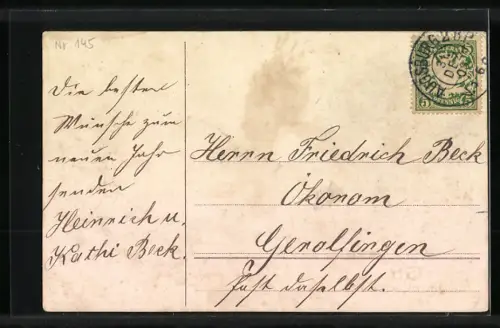 Nr 145
AUGSBURG 2 B.P.
5 5
Die besten
Wünsche zum
neuen Jahr
senden
Heinrich u.
Kathi Beck.
Herrn Friedrich Beck
Ökonom
Gerolfingen
Post daselbst.